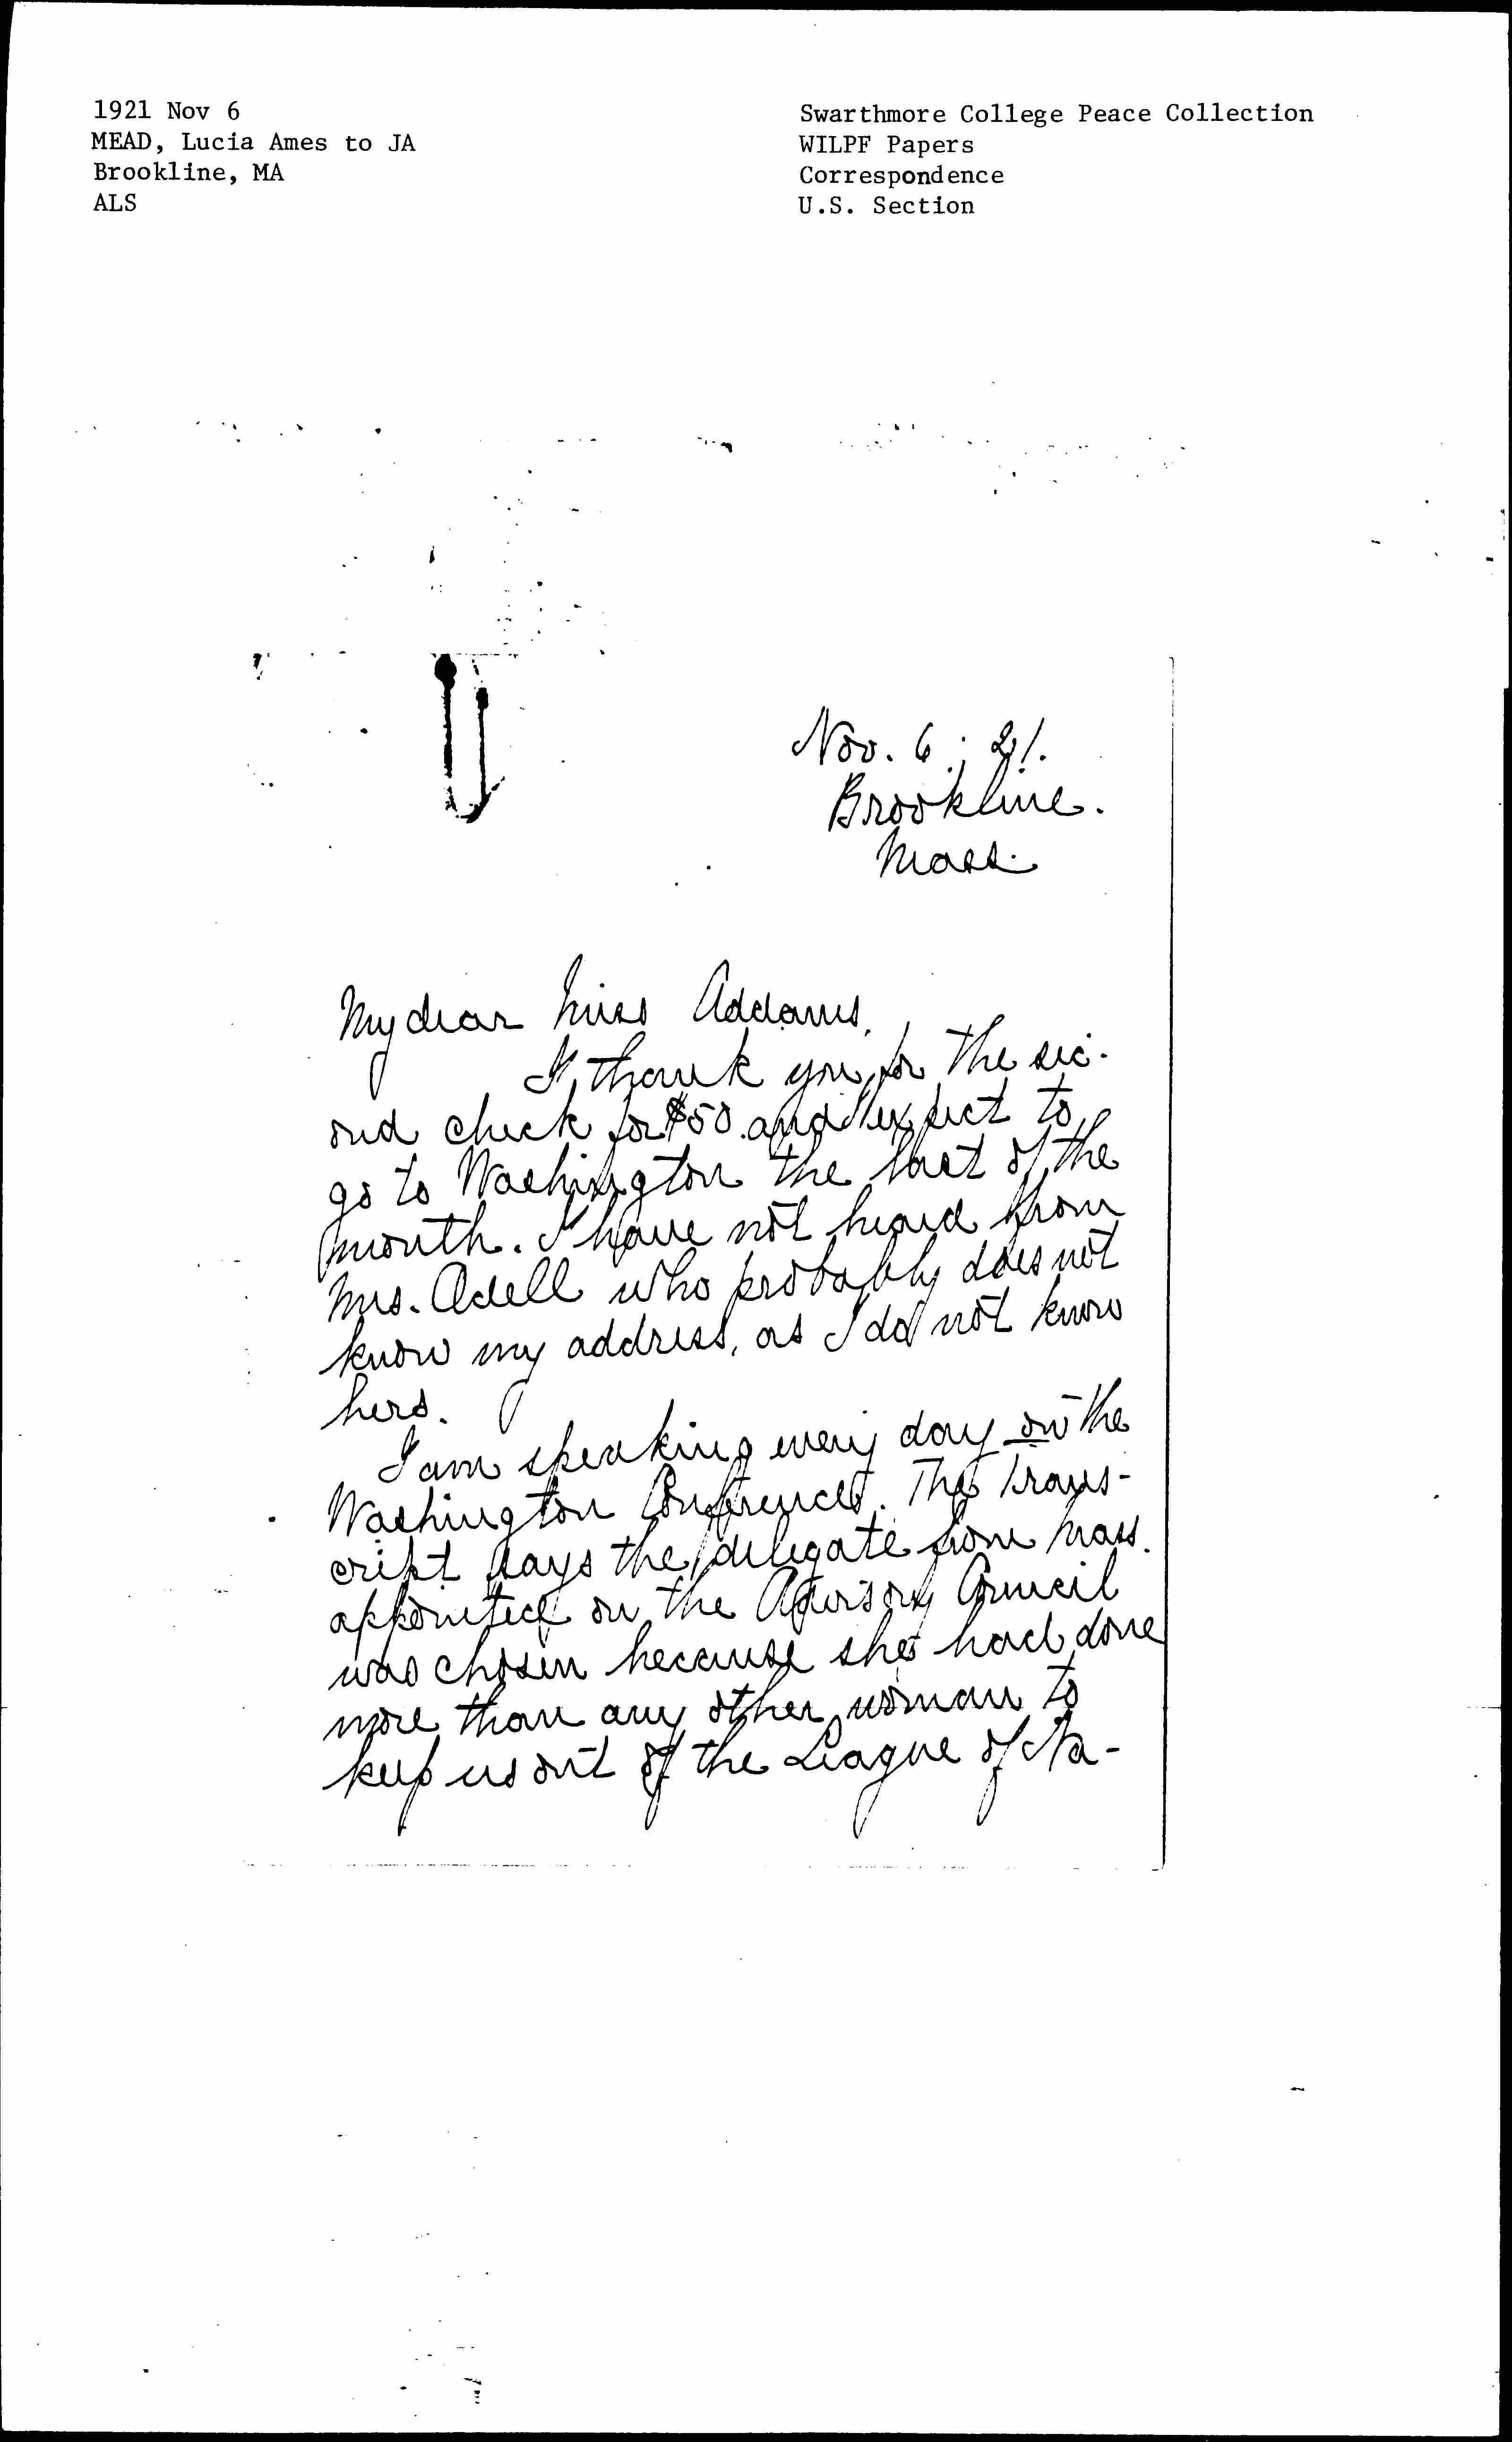 1921 Nov 6
MEAD, Lucia Ames to JA
Brookline, MA
ALS
Swarthmore College Peace Collection
WILPF Papers
Correspondence
U.S. Section
Nov. 6, 21.
Brookline.
Mass.
My dear Miss Addams,
I thank you for the sec-
ond check for $50. and expect to
go to Washington the last of the
month. I have not heard from
Mrs. Odell who probably does not
know my address, as I do not know
hers.
I am speaking every day on the
Washington Conference. The Trans-
cript says the delegate from Mass.
appointed on the Advisory Council
was chosen because she had done
more than any other woman to
keep us out of the League of Na-